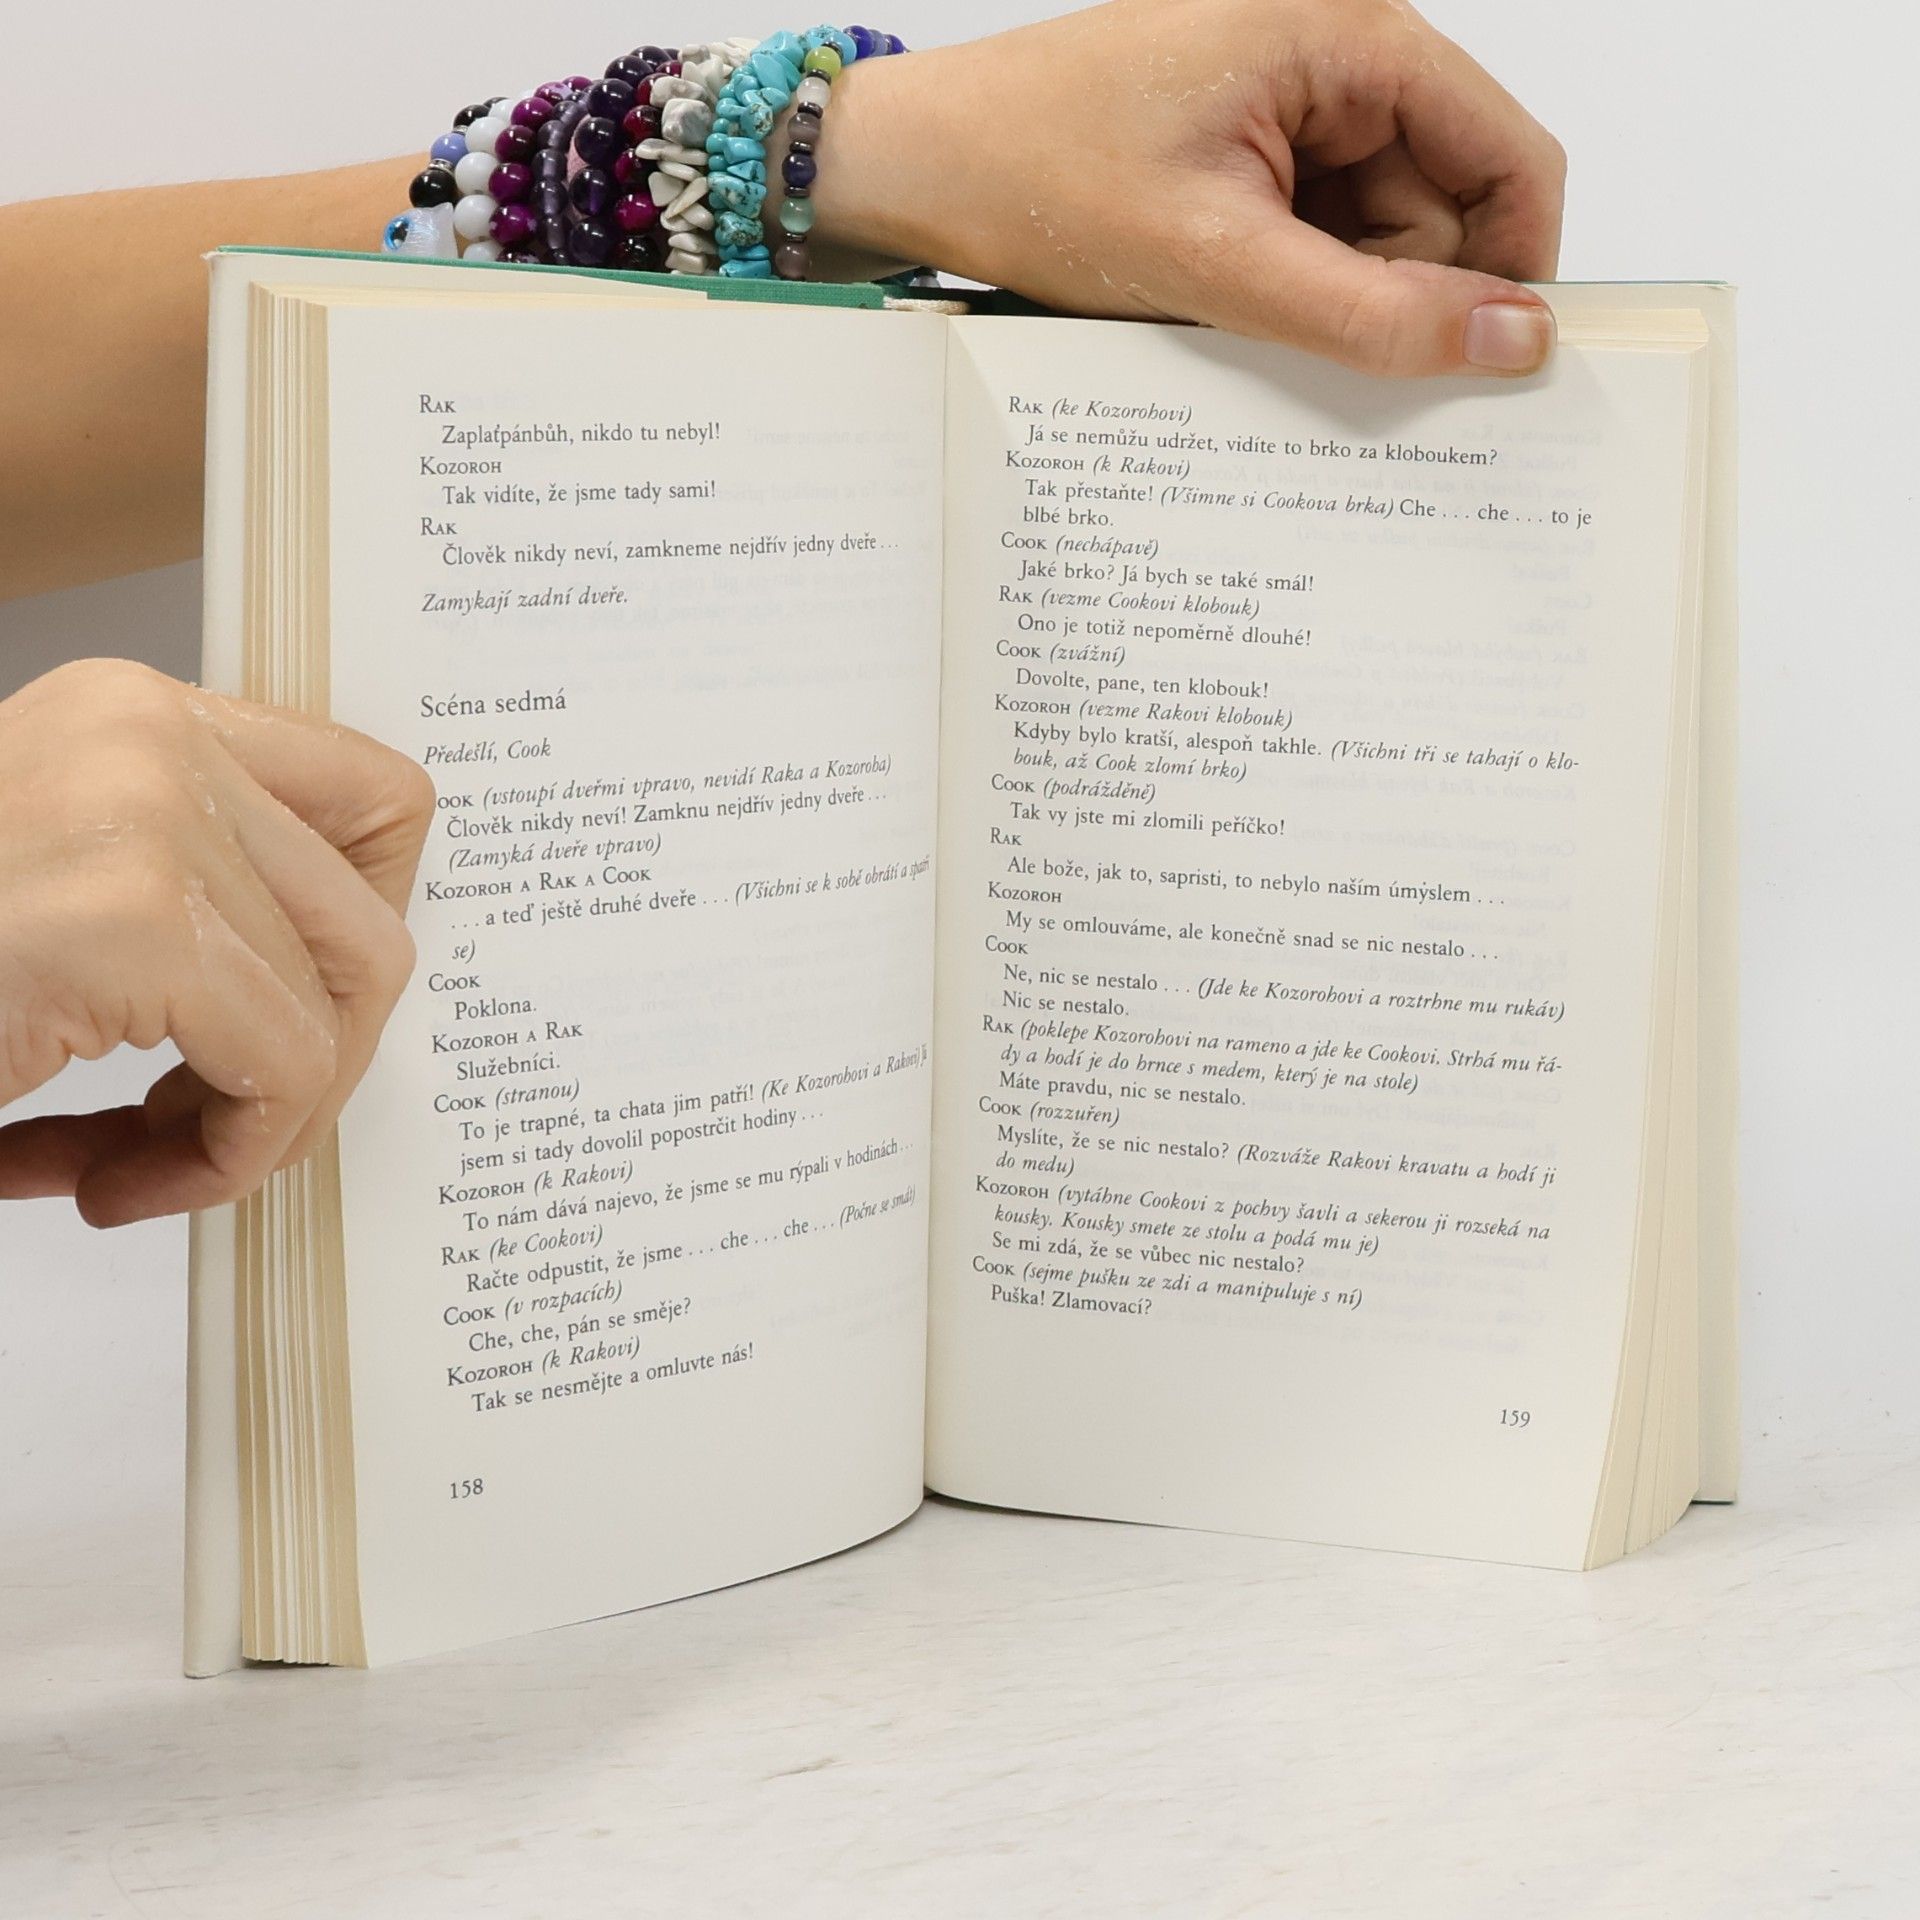 RAK
Zaplaťpánbůh, nikdo tu nebyl!
KOZOROH
Tak vidíte, že jsme tady sami!
RAK
Člověk nikdy neví, zamkneme nejdřív jedny dveře . . .
Zamykají zadní dveře.
Scéna sedmá
Předešlí, Cook
OOK (vstoupí dveřmi vpravo, nevidí Raka a Kozoroha)
Člověk nikdy neví! Zamknu nejdřív jedny dveře . . .
(Zamyká dveře vpravo)
KOZOROH A RAK A COOK
. . . a teď ještě druhé dveře . . . (Všichni se k sobě obrátí a spatří
se)
COOK
Poklona.
KOZOROH A RAK
Služebníci.
COOK (stranou)
To je trapné, ta chata jim patří! (Ke Kozorohovi a Rakovi) Já
jsem si tady dovolil popostrčit hodiny . . .
KOZOROH (k Rakovi)
To nám dává najevo, že jsme se mu rýpali v hodinách . . .
RAK (ke Cookovi)
Račte odpustit, že jsme . . . che . . . che . . . (Počne se smát)
COOK (v rozpacích)
Che, che, pán se směje?
KOZOROH (k Rakovi)
Tak se nesmějte a omluvte nás!
158
RAK (ke Kozorohovi)
Já se nemůžu udržet, vidíte to brko za kloboukem?
KOZOROH (k Rakovi)
Tak přestaňte! (Všimne si Cookova brka) Che . . . che . . . to je
blbé brko.
COOK (nechápavě)
Jaké brko? Já bych se také smál!
RAK (vezme Cookovi klobouk)
Ono je totiž nepoměrně dlouhé!
COOK (zvážní)
Dovolte, pane, ten klobouk!
KOZOROH (vezme Rakovi klobouk)
Kdyby bylo kratší, alespoň takhle. (Všichni tři se tahají o klo-
bouk, až Cook zlomí brko)
COOK (podrážděně)
Tak vy jste mi zlomili peříčko!
RAK
Ale bože, jak to, sapristi, to nebylo naším úmyslem . . .
KOZOROH
My se omlouváme, ale konečně snad se nic nestalo . . .
COOK
Ne, nic se nestalo . . . (Jde ke Kozorohovi a roztrhne mu rukáv)
Nic se nestalo.
RAK (poklepe Kozorohovi na rameno a jde ke Cookovi. Strhá mu řá-
dy a hodí je do hrnce s medem, který je na stole)
Máte pravdu, nic se nestalo.
COOK (rozzuřen)
Myslíte, že se nic nestalo? (Rozváže Rakovi kravatu a hodí ji
do medu)
KOZOROH (vytáhne Cookovi z pochvy šavli a sekerou ji rozseká na
kousky. Kousky smete ze stolu a podá mu je)
Se mi zdá, že se vůbec nic nestalo?
COOK (sejme pušku ze zdi a manipuluje s ní)
Puška! Zlamovací?
159